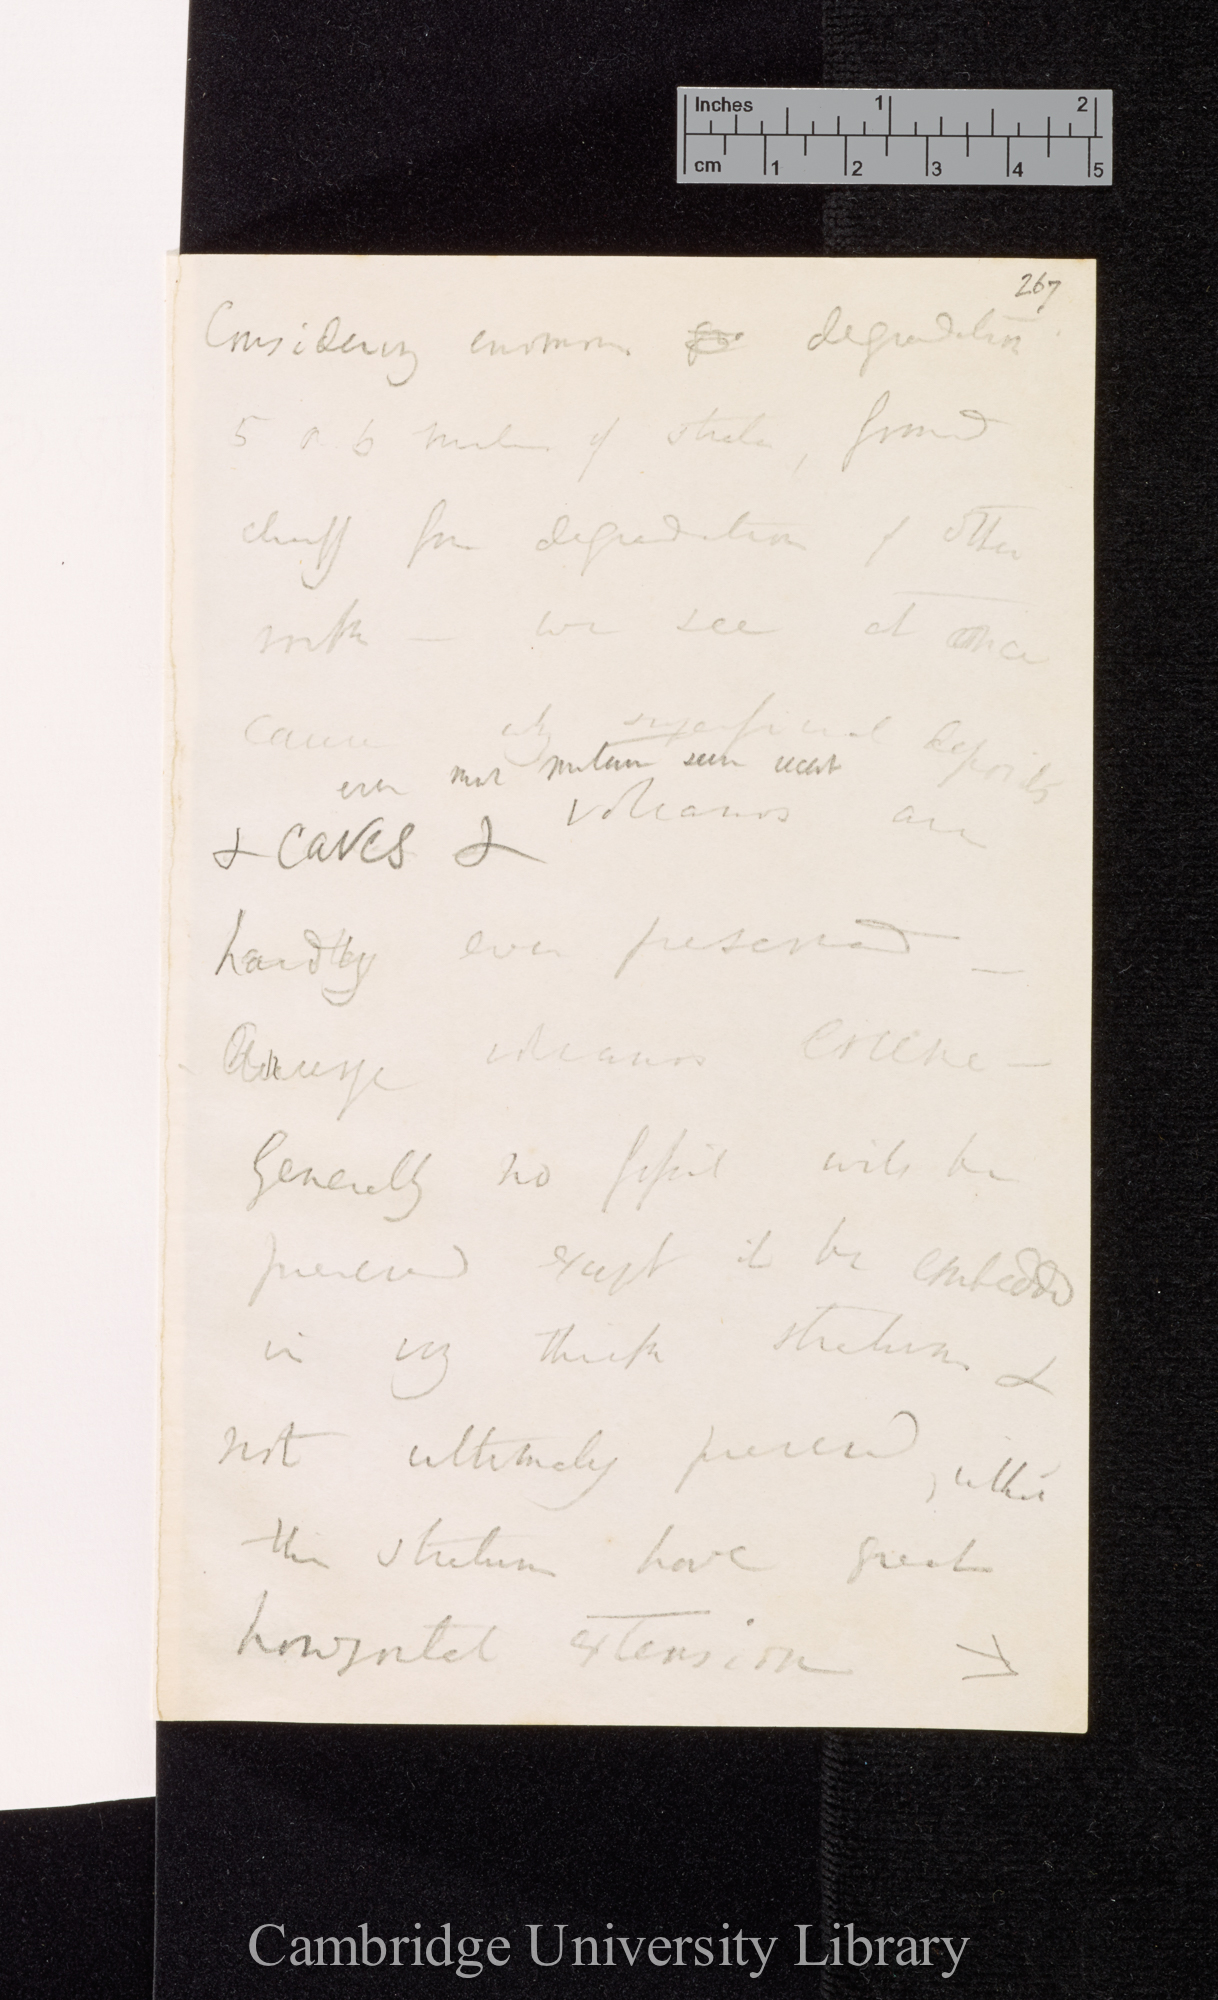 Inches 1 2
cm 1 2 3 4 5
267
Considering enormous degradation
5 or 6 miles of strata, formed
chiefly from degradation of other
rocks — we see at once
cause why superficial deposits
even most modern seem recent
& CAVES & volcanos are
hardly ever preserved —
volcanos Eocene —
Generally no fossil will be
preserved except it be embedded
in very thick stratum &
not ultimately preserved, without
this stratum have great
horizontal extension
Cambridge University Library